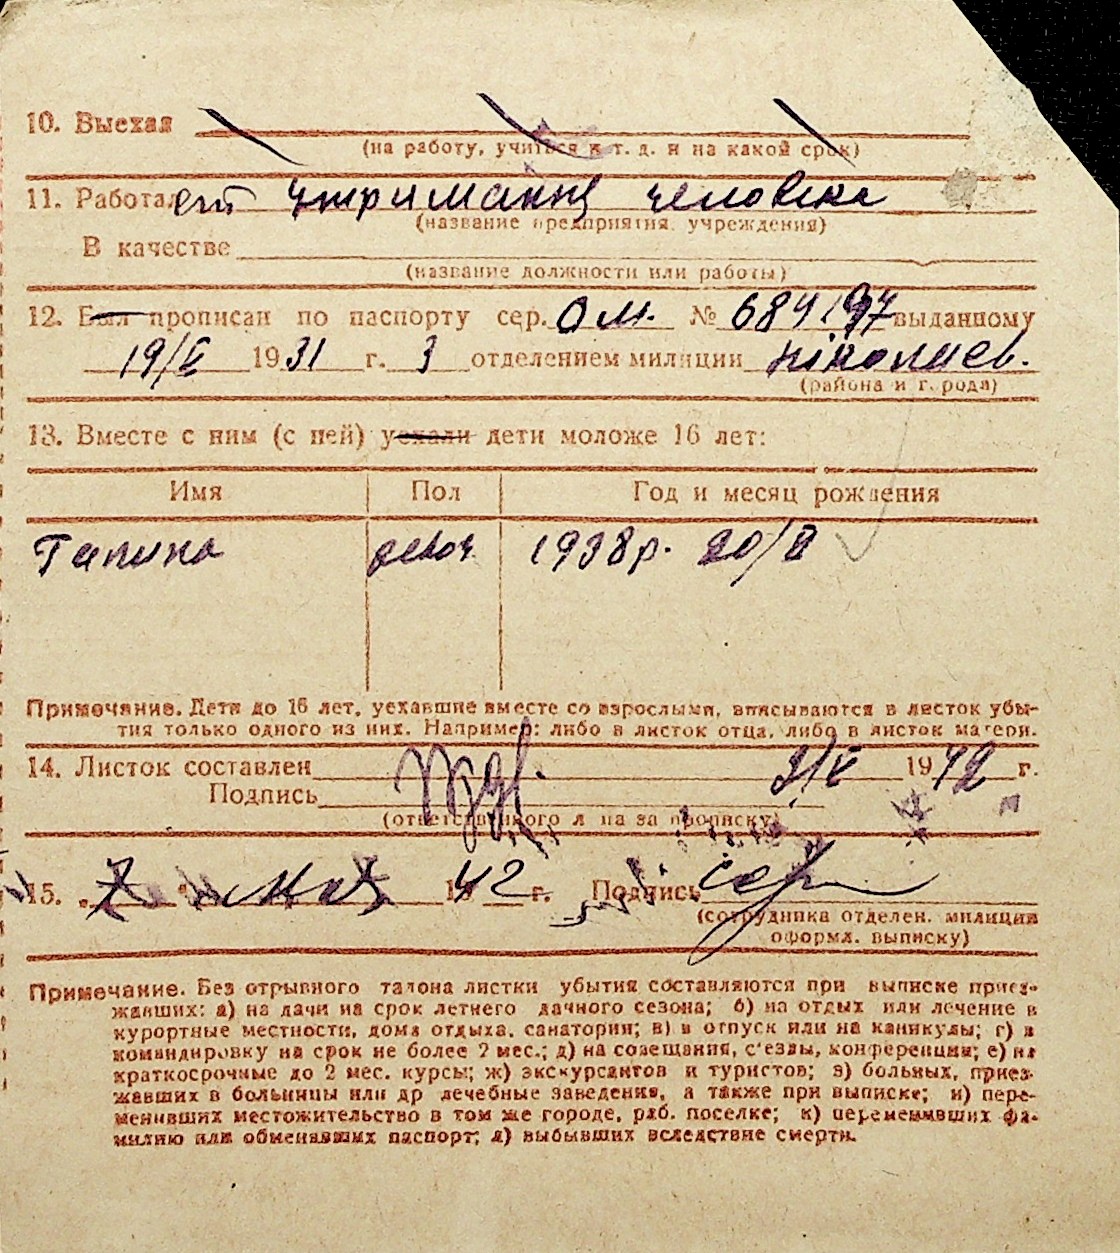 10. Выехал
(на работу, учиться и т. д. и на какой срок)
11. Работал утриманнц человека
(название предприятия, учреждения)
В качестве
(название должности или работы)
12. Был прописан по паспорту сер. ОМ. № 684197 выданному
19/V 1931 г. 3 отделением милиции Ніколаев.
(района и города)
13. Вместе с ним (с ней) уехали дети моложе 16 лет:
Имя Пол Год и месяц рождения
Галина девоч 1938р. 20/II
Примечание. Дети до 16 лет, уехавшие вместе со взрослыми, вписываются в листок убы-
тия только одного из них. Например: либо в листок отца, либо в листок матери.
14. Листок составлен 2/V 1942 г.
Подпись
(ответственного лица за прописку)
15. „7“ мая 1942 г. Подпись
(сотрудника отделен. милиции
оформл. выписку)
Примечание. Без отрывного талона листки убытия составляются при выписке приез-
жавших: а) на дачи на срок летнего дачного сезона; б) на отдых или лечение в
курортные местности, дома отдыха, санатории; в) в отпуск или на каникулы; г) в
командировку на срок не более 2 мес.; д) на совещания, с'езды, конференции; е) на
краткосрочные до 2 мес. курсы; ж) экскурсантов и туристов; з) больных, приез-
жавших в больницы или др лечебные заведения, а также при выписке; и) пере-
менивших местожительство в том же городе, раб. поселке; к) переменивших фа-
милию или обменявших паспорт; л) выбывших вследствие смерти.